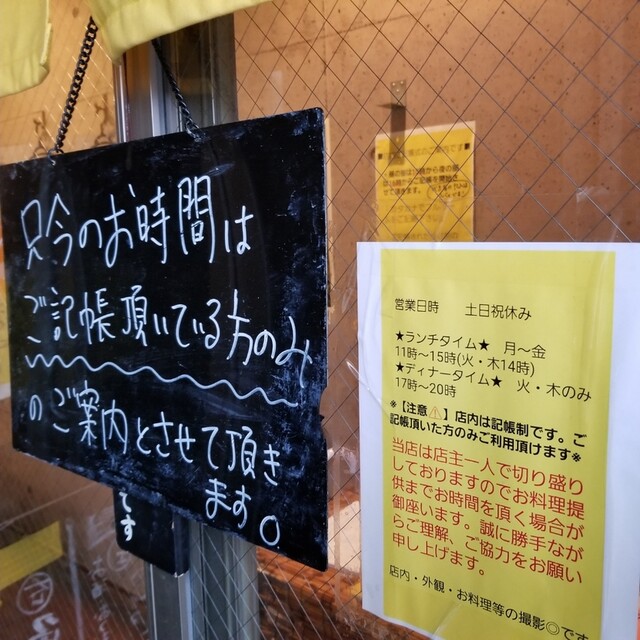 只今のお時間は
ご記帳頂いている方のみ
のご案内とさせて頂き
ます。
です
営業日時　土日祝休み
★ランチタイム★　月〜金
11時〜15時(火・木14時)
★ディナータイム★　火・木のみ
17時〜20時
※【注意⚠】店内は記帳制です。ご
記帳頂いた方のみご利用頂けます※
当店は店主一人で切り盛り
しておりますのでお料理提
供までお時間を頂く場合が
御座います。誠に勝手なが
らご理解、ご協力をお願い
申し上げます。
店内・外観・お料理等の撮影◎です